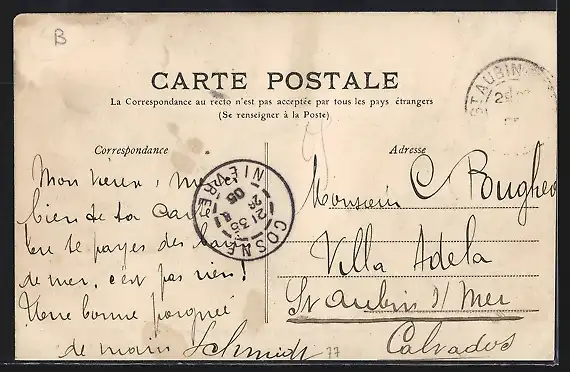 B
CARTE POSTALE
La Correspondance au recto n'est pas acceptée par tous les pays étrangers
(Se renseigner à la Poste)
Correspondance
Adresse
Mon vieux,
bien de ta carte
tu te payes des bains
de mer, c'est pas rien!
Une bonne poignée
de main Schmidt
77
Monsieur C Bugheo
Villa Adela
St Aubin s/ Mer
Calvados
COSNE
NIEVRE
21 35
8
26
05
ST AUBIN